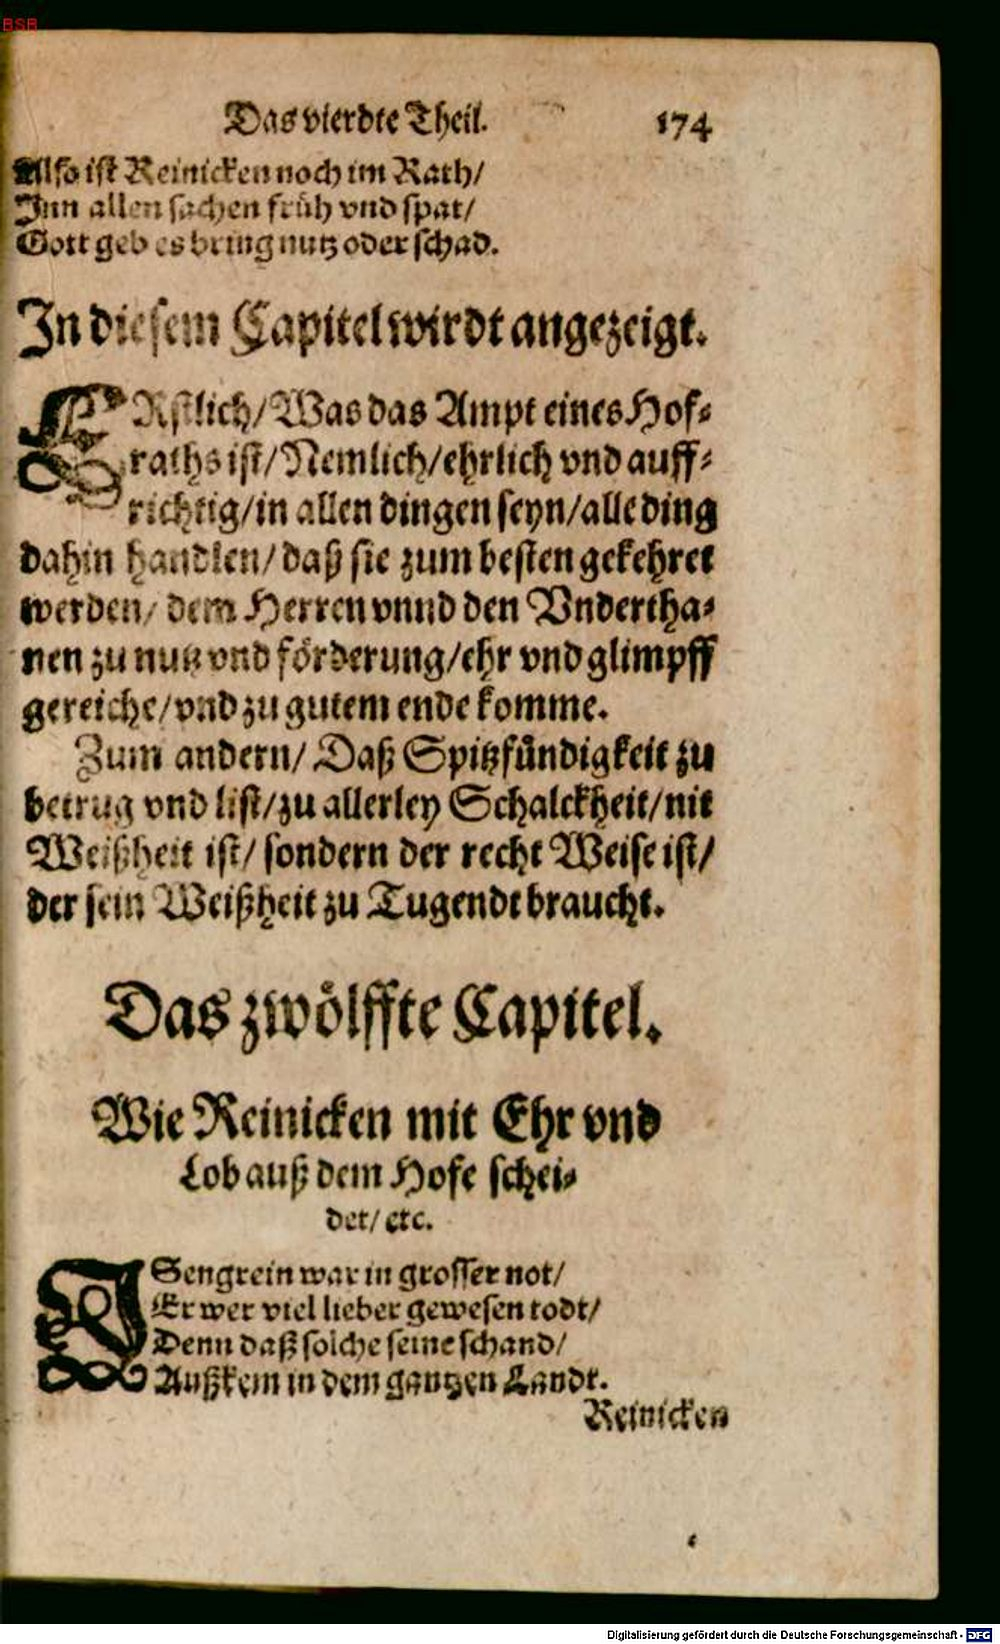 BSB
Das vierdte Theil. 174
Also ist Reinicken noch im Rath/
Inn allen sachen früh vnd spat/
Gott geb es bring nutz oder schad.
In diesem Capitel wirdt angezeigt.
ERstlich/ Was das Ampt eines Hof-
raths ist/ Nemlich/ ehrlich vnd auff-
richtig/ in allen dingen seyn/ alle ding
dahin handlen/ daß sie zum besten gekehret
werden/ dem Herren vnnd den Vndertha-
nen zu nutz vnd förderung/ ehr vnd glimpff
gereiche/ vnd zu gutem ende komme.
Zum andern/ Daß Spitzfündigkeit zu
betrug vnd list/ zu allerley Schalckheit/ nit
Weißheit ist/ sondern der recht Weise ist/
der sein Weißheit zu Tugendt braucht.
Das zwölffte Capitel.
Wie Reinicken mit Ehr vnd
Lob auß dem Hofe schei-
det/ etc.
ISengrein war in grosser not/
Er wer viel lieber gewesen todt/
Denn daß solche seine schand/
Außkem in dem gantzen Landt.
Reinicken
Digitalisierung gefördert durch die Deutsche Forschungsgemeinschaft - DFG